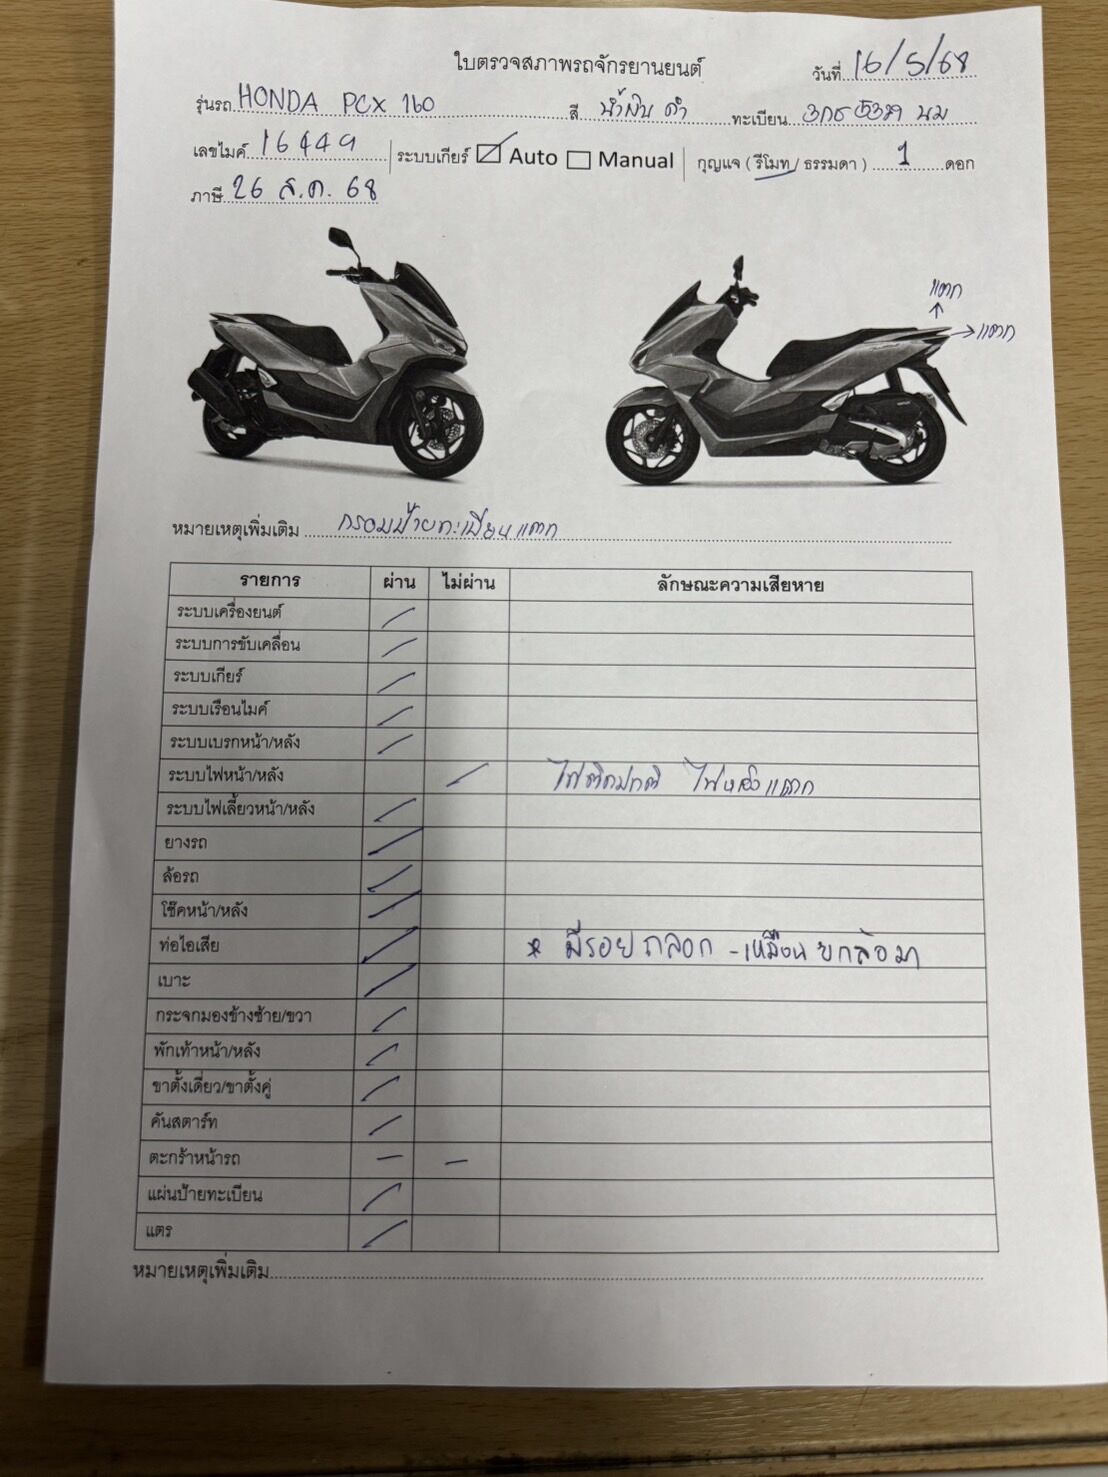 ใบตรวจสภาพรถจักรยานยนต์
วันที่ 16/5/68
รุ่นรถ HONDA PCX 160 สี น้ำเงิน ดำ ทะเบียน นม
เลขไมค์ 16449 ระบบเกียร์ Auto Manual กุญแจ ( รีโมท / ธรรมดา ) 1 ดอก
ภาษี 26 ส.ค. 68
แตก
แตก
หมายเหตุเพิ่มเติม กรอบป้ายทะเบียนแตก
รายการ ผ่าน ไม่ผ่าน ลักษณะความเสียหาย
ระบบเครื่องยนต์
ระบบการขับเคลื่อน
ระบบเกียร์
ระบบเรือนไมค์
ระบบเบรกหน้า/หลัง
ระบบไฟหน้า/หลัง ไฟติดปกติ ไฟหลังแตก
ระบบไฟเลี้ยวหน้า/หลัง
ยางรถ
ล้อรถ
โช๊คหน้า/หลัง
ท่อไอเสีย * มีรอยถลอก - เหมือนยกล้อมา
เบาะ
กระจกมองข้างซ้าย/ขวา
พักเท้าหน้า/หลัง
ขาตั้งเดี่ยว/ขาตั้งคู่
คันสตาร์ท
ตะกร้าหน้ารถ – –
แผ่นป้ายทะเบียน
แตร
หมายเหตุเพิ่มเติม